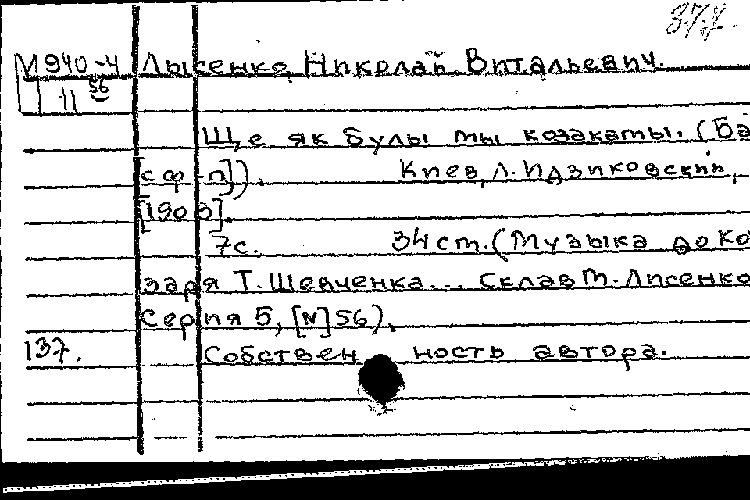 377.
М 940-4 Лысенко, Николай Витальевич.
11 56
Ще як булы мы козакамы. (Ба
[с ф-п]). Киев, Л. Идзиковский,
[190 ].
7с. 34 cm. (Музыка до Ко
заря Т. Шевченка... Склав М. Лисенко
Серия 5, [N] 56).
137. Собствен ность автора.